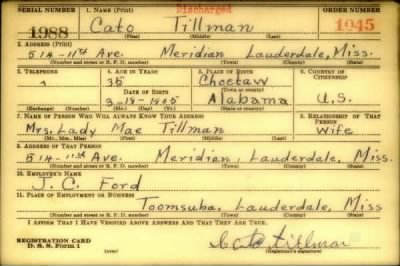 Discharged
SERIAL NUMBER 1. NAME (Print) ORDER NUMBER
1988 Cato Tillman 1945
(First) (Middle) (Last)
2. ADDRESS (Print)
514-11th Ave. Meridian Lauderdale, Miss.
(Number and street or R. F. D. number) (Town) (County) (State)
3. TELEPHONE 4. AGE IN YEARS 5. PLACE OF BIRTH 6. COUNTRY OF CITIZENSHIP
35 Choctaw
DATE OF BIRTH (Town or county)
1905 Alabama U.S.
(Exchange) (Number) (Mo.) (Day) (Yr.) (State or country)
7. NAME OF PERSON WHO WILL ALWAYS KNOW YOUR ADDRESS 8. RELATIONSHIP OF THAT PERSON
Mrs. Lady Mae Tillman Wife
(Mr., Mrs., Miss) (First) (Middle) (Last)
9. ADDRESS OF THAT PERSON
514-11th Ave. Meridian, Lauderdale, Miss.
(Number and street or R. F. D. number) (Town) (County) (State)
10. EMPLOYER'S NAME
J. C. Ford
11. PLACE OF EMPLOYMENT OR BUSINESS
Toomsuba, Lauderdale, Miss
(Number and street or R. F. D. number) (Town) (County) (State)
I AFFIRM THAT I HAVE VERIFIED ABOVE ANSWERS AND THAT THEY ARE TRUE.
REGISTRATION CARD
D. S. S. FORM 1
Cato tillman
(Registrant's signature)